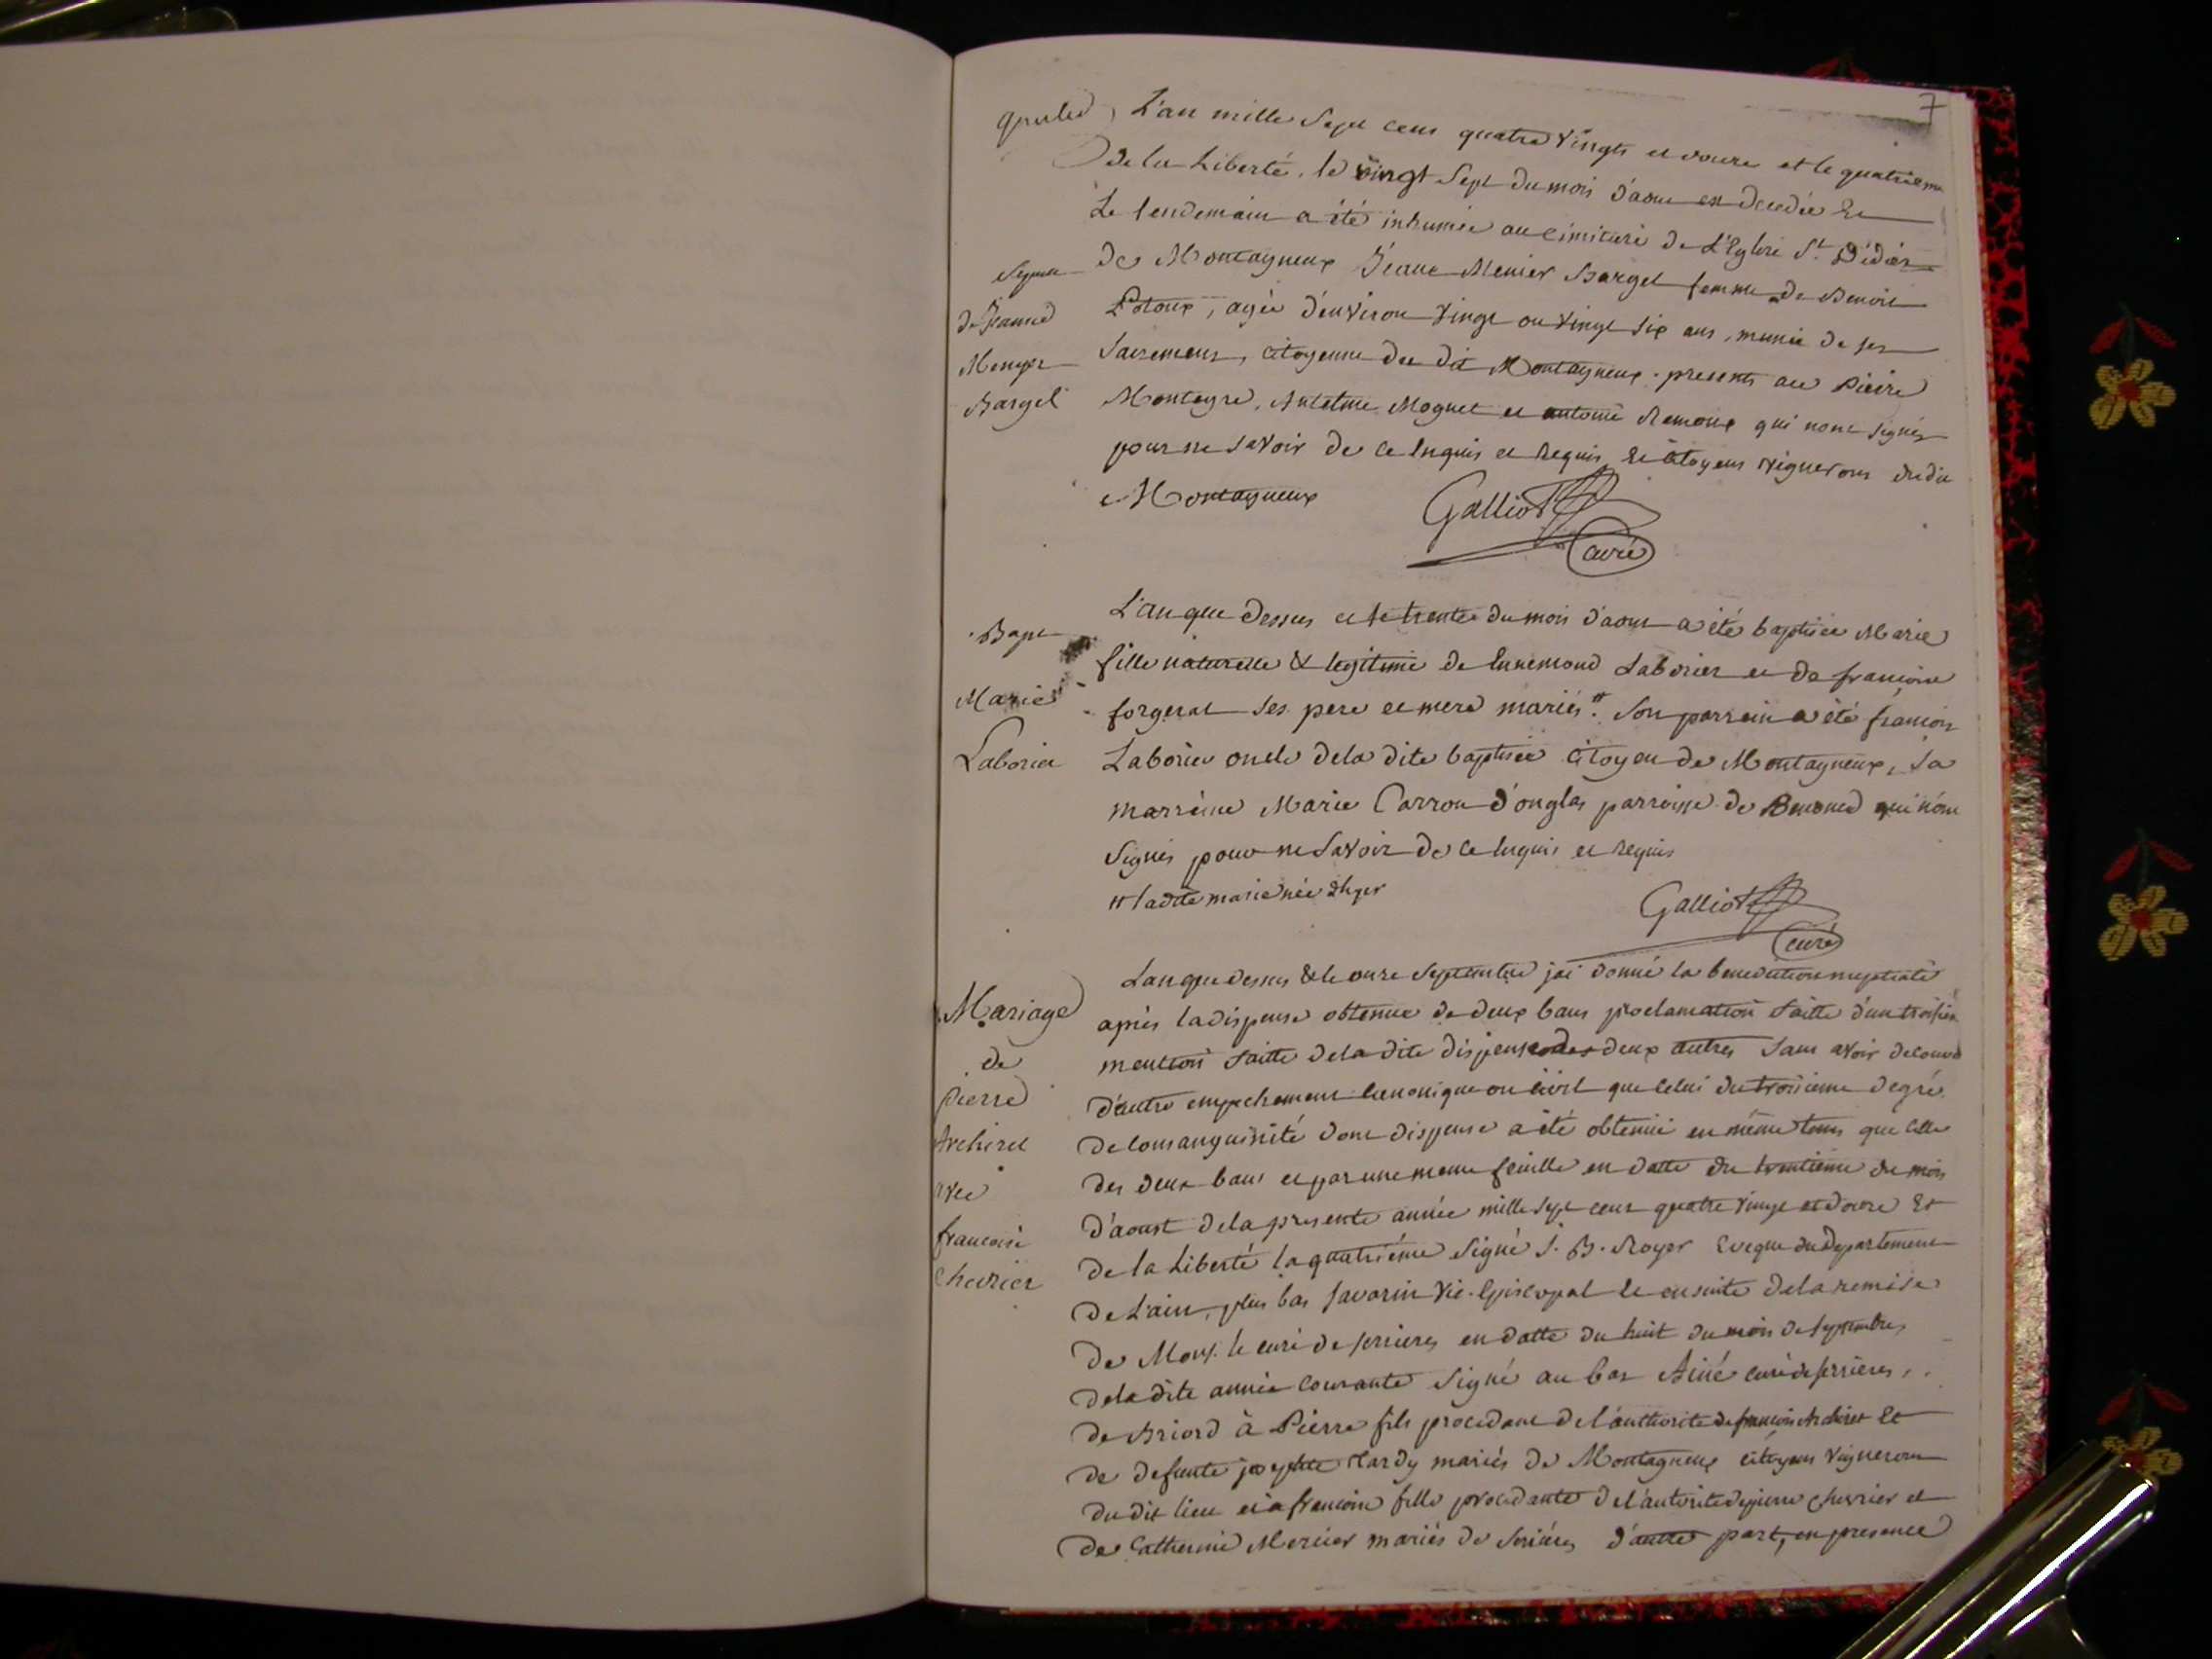 7
L'an mille Sept cens quatre vingts et douze et le quatrieme
de la Liberté, le vingt Sept du mois d'aout est decedée &
Le lendemain a été inhumée au cimitiere de L'Eglise St. Didier
de Montagneux Jeane Menier Bargel femme de Benoit
agée d'environ vingt ou vingt six ans, munie de ses
Sacremens, citoyenne du dit Montagneux. presents au Pierre
Montagre, Antelme Moguet et antoine Remoux qui n'ont signés
pour ne savoir de ce Enquis et Requis, & Citoyens vignerons dudit
Montagneux
Galliot
curé
Sepure
de Jeanne
Menyer
Bargel
L'an que dessus et le trente du mois d'aout a été baptisée Marie
fille naturelle & legitime de Ennemond Laborier et de francoise
forgerat ses pere et mere mariés #. Son parrein a été francois
Laborier oncle dela dite baptisée Citoyen de Montagneux, sa
marreine Marie Carron d'onglas parroisse de Benonce qui n'ont
Signés pour ne Savoir de ce Enquis et Requis
# ladite marie née hyer
Galliot
curé
Bapt
Marie
Laborier
L'an que dessus & le onze Septembre jai donné la benediction nuptiale
après la dispense obtenue de deux bans proclamation faitte d'un troisiem
mention faitte dela dite dispense des deux autres sans avoir decouvd
d'autre empechement canonique ou civil que celui du troisieme degré
de consanguinité dont dispense a été obtenue en même tems que celle
des deux bans et par une meme feuille en datte du trentieme du mois
d'aoust dela presente année mille sept cent quatre vingt et douze Et
de la Liberté la quatriéme Signé J. B. Royer Eveque du Departement
de L'ain, plus bas Savarin Vic. Episcopal & ensuite dela remise
de Mons. le curé de serrieres en datte du huit du mois de septembre
dela dite année courante Signé au bas Ainé curé de serrieres,
de Briord à Pierre fils procedant de l'authorite de francois Archiret Et
de defunte josephte Tardy mariés de Montagneux citoyens vignerons
du dit lieu et à francoise fille procedante de l'autorite de pierre Chevrier et
de Catherine Mercier mariés de Seriéres d'autre part, en presence
Mariage
de
Pierre
Archiret
avec
francoise
Chevrier